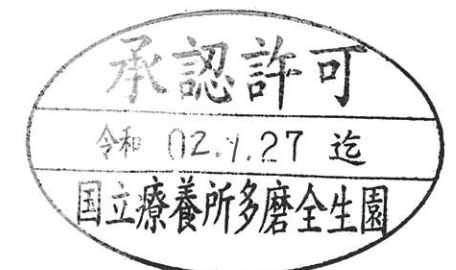 承認許可
令和 02.1.27 迄
国立療養所多磨全生園